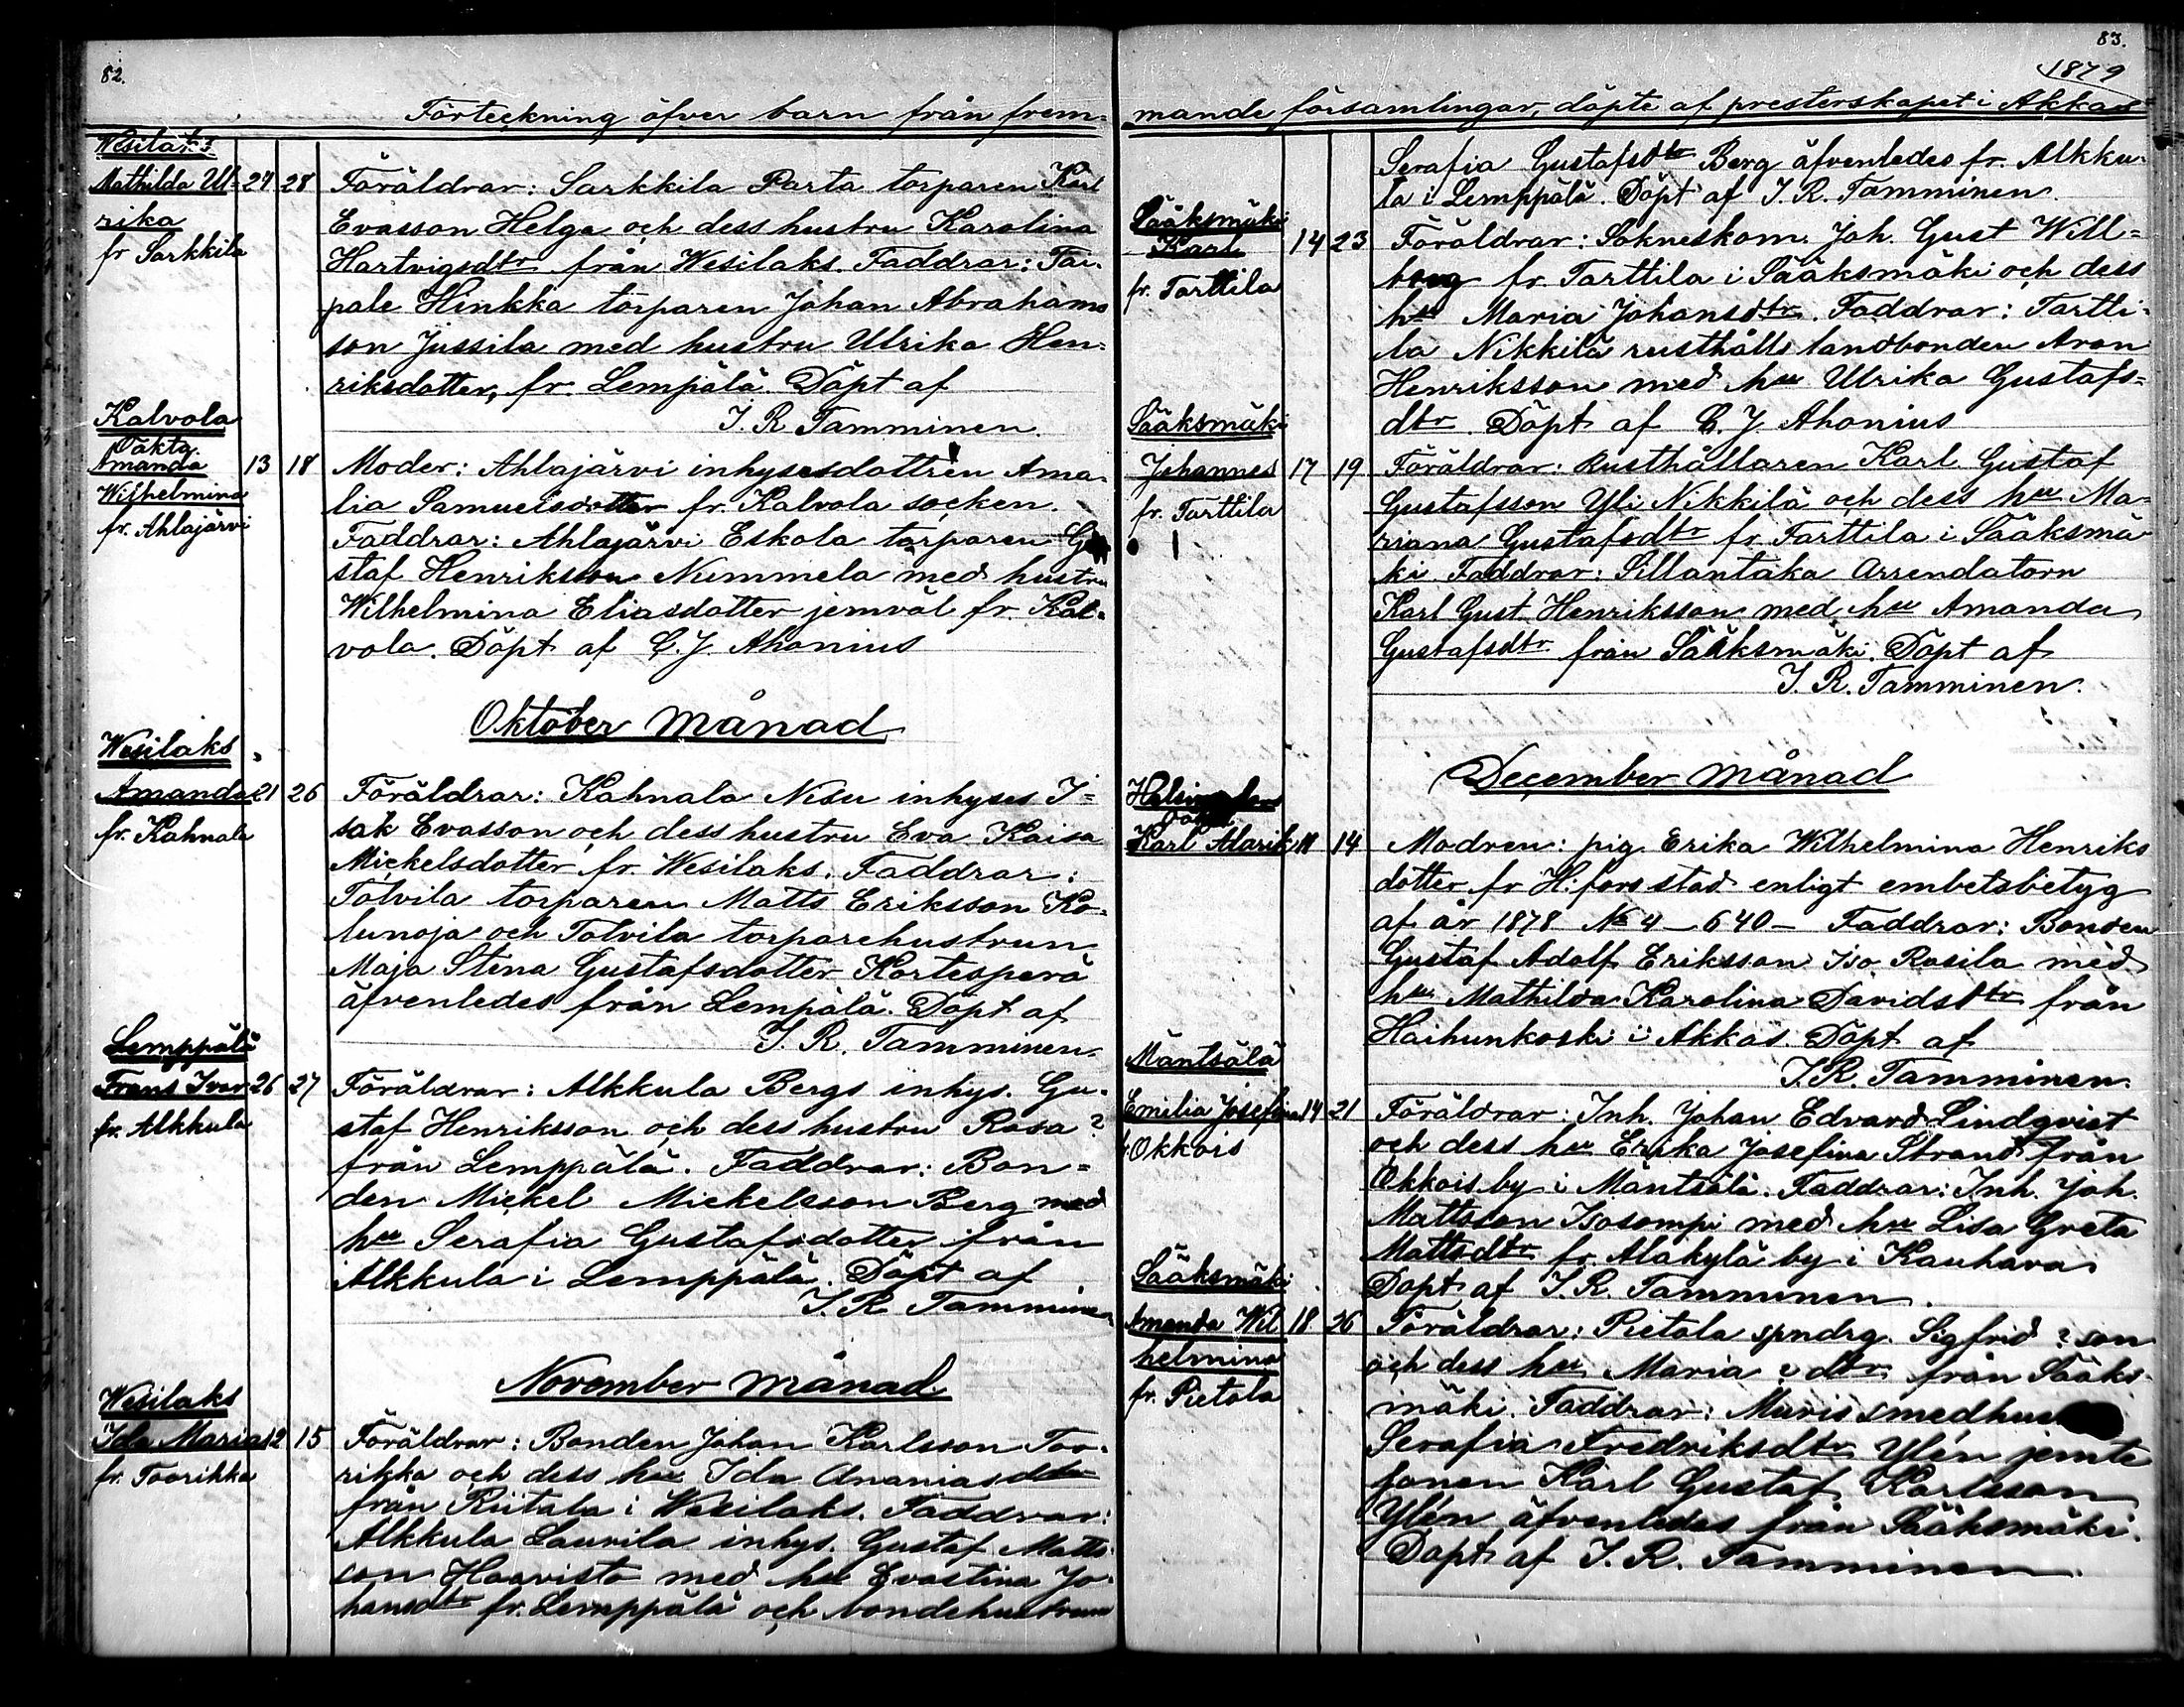 82.
Förteckning öfver barn från frem-
Wesilax
Mathilda Ul- 24 28 Föräldrar: Sarkkila Parta torparen Karl
rika Evasson Helga och dess hustru Karolina
fr Sarkkila Hartvigsdtr från Wesilaks. Faddrar: Tai-
pale Hinkka torparen Johan Abrahams
son Jussila med hustru Ulrika Hen-
riksdotter, fr. Lempälä. Döpt af
Kalvola I. R. Tamminen.
Oäkta
Amanda 13 18 Moder: Ahlajärvi inhysesdottren Ama-
Wilhelmina lia Samuelsdotter fr. Kalvola socken.
fr. Ahlajärvi Faddrar: Ahlajärvi Eskola torparen Gu
staf Henriksson Nummela med hustru
Wilhelmina Eliasdotter jemväl fr. Kal-
vola. Döpt af C. J. Ahonius
Oktober Månad
Wesilaks
Amanda 21 26 Föräldrar: Kahnala Nisu inhyses I-
fr. Kahnala sak Evasson och dess hustru Eva Kaisa
Mickelsdotter fr. Wesilaks. Faddrar:
Totvila torparen Matts Eriksson Ko-
lunoja och Totvila torparehustrun
Maja Stina Gustafsdotter Kortesperä
äfvenledes från Lempälä. Döpt af
Lemppälä I. R. Tamminen.
Frans Ivar 26 27 Föräldrar: Alkkula Bergs inhys. Gu-
fr. Alkkula staf Henriksson och dess hustru Rosa?
från Lemppälä. Faddrar: Bon-
den Mickel Mickelsson Berg med
hu Serafia Gustafsdotter från
Alkkula i Lemppälä. Döpt af
I. R. Tamminen
November Månad
Wesilaks
Ida Maria 12 15 Föräldrar: Bonden Johan Karlsson Too-
fr. Toorikka rikka och dess hu Ida Ananiasdtr
från Riitala i Wesilaks. Faddrar:
Alkkula Laurila inhys. Gustaf Matts-
son Haavisto med hu Evastina Jo-
hansdtr fr. Lemppälä och bondehustrun
83.
1879
mande församlingar, döpte af presterskapet i Akkas
Serafia Gustafsdtr Berg äfvenledes fr. Alkku-
la i Lemppälä. Döpt af I. R. Tamminen.
Sääksmäki
Karl 14 23 Föräldrar: Sokneskom. Joh. Gust Will-
fr. Tarttila berg fr. Tarttila i Sääksmäki och dess
hu Maria Johansdtr. Faddrar: Tartti-
la Nikkilä rusthålls landbonden Aron
Henriksson med hu Ulrika Gustafs-
Sääksmäki dtr. Döpt af C. J. Ahonius
Johannes 17 19 Föräldrar: Rusthållaren Karl Gustaf
fr. Tarttila Gustafsson Yli Nikkilä och dess hu Ma-
riana Gustafsdtr fr. Tarttila i Sääksmä-
ki Faddrar: Sillantaka Arrendatorn
Karl Gust. Henriksson med hu Amanda
Gustafsdtr från Sääksmäki. Döpt af
I. R. Tamminen.
December Månad
Karl Alarik 11 14 Modren: pig. Erika Wilhelmina Henriks
dotter fr H:fors stad enligt embetsbetyg
af år 1878 No 4 – 640 – Faddrar: Bonden
Gustaf Adolf Eriksson Iso Rasila med
hu Mathilda Karolina Davidsdtr från
Haihunkoski i Akkas Döpt af
Mäntsälä I. R. Tamminen.
Emilia Josefina 14 21 Föräldrar: Inh. Johan Edvard Lindqvist
fr. Okkois och dess hu Erika Josefina Strand från
Okkois by i Mäntsälä. Faddrar: Inh. Joh.
Mattsson Isosompi med hu Lisa Greta
Mattsdtr fr. Alakylä by i Kauhava.
Sääksmäki Döpt af I. R. Tamminen.
Amanda Wil 18 26 Föräldrar: Pietola spndrg. Sigfrid ? son
helmina och dess hu Maria ? dtr. från Sääks-
fr. Pietola mäki. Faddrar: Muris smedhus
Serafia Fredriksdtr Ylén jemte
sonen Karl Gustaf Karlsson
Ylén äfvenledes från Sääksmäki.
Döpt af I. R. Tamminen.